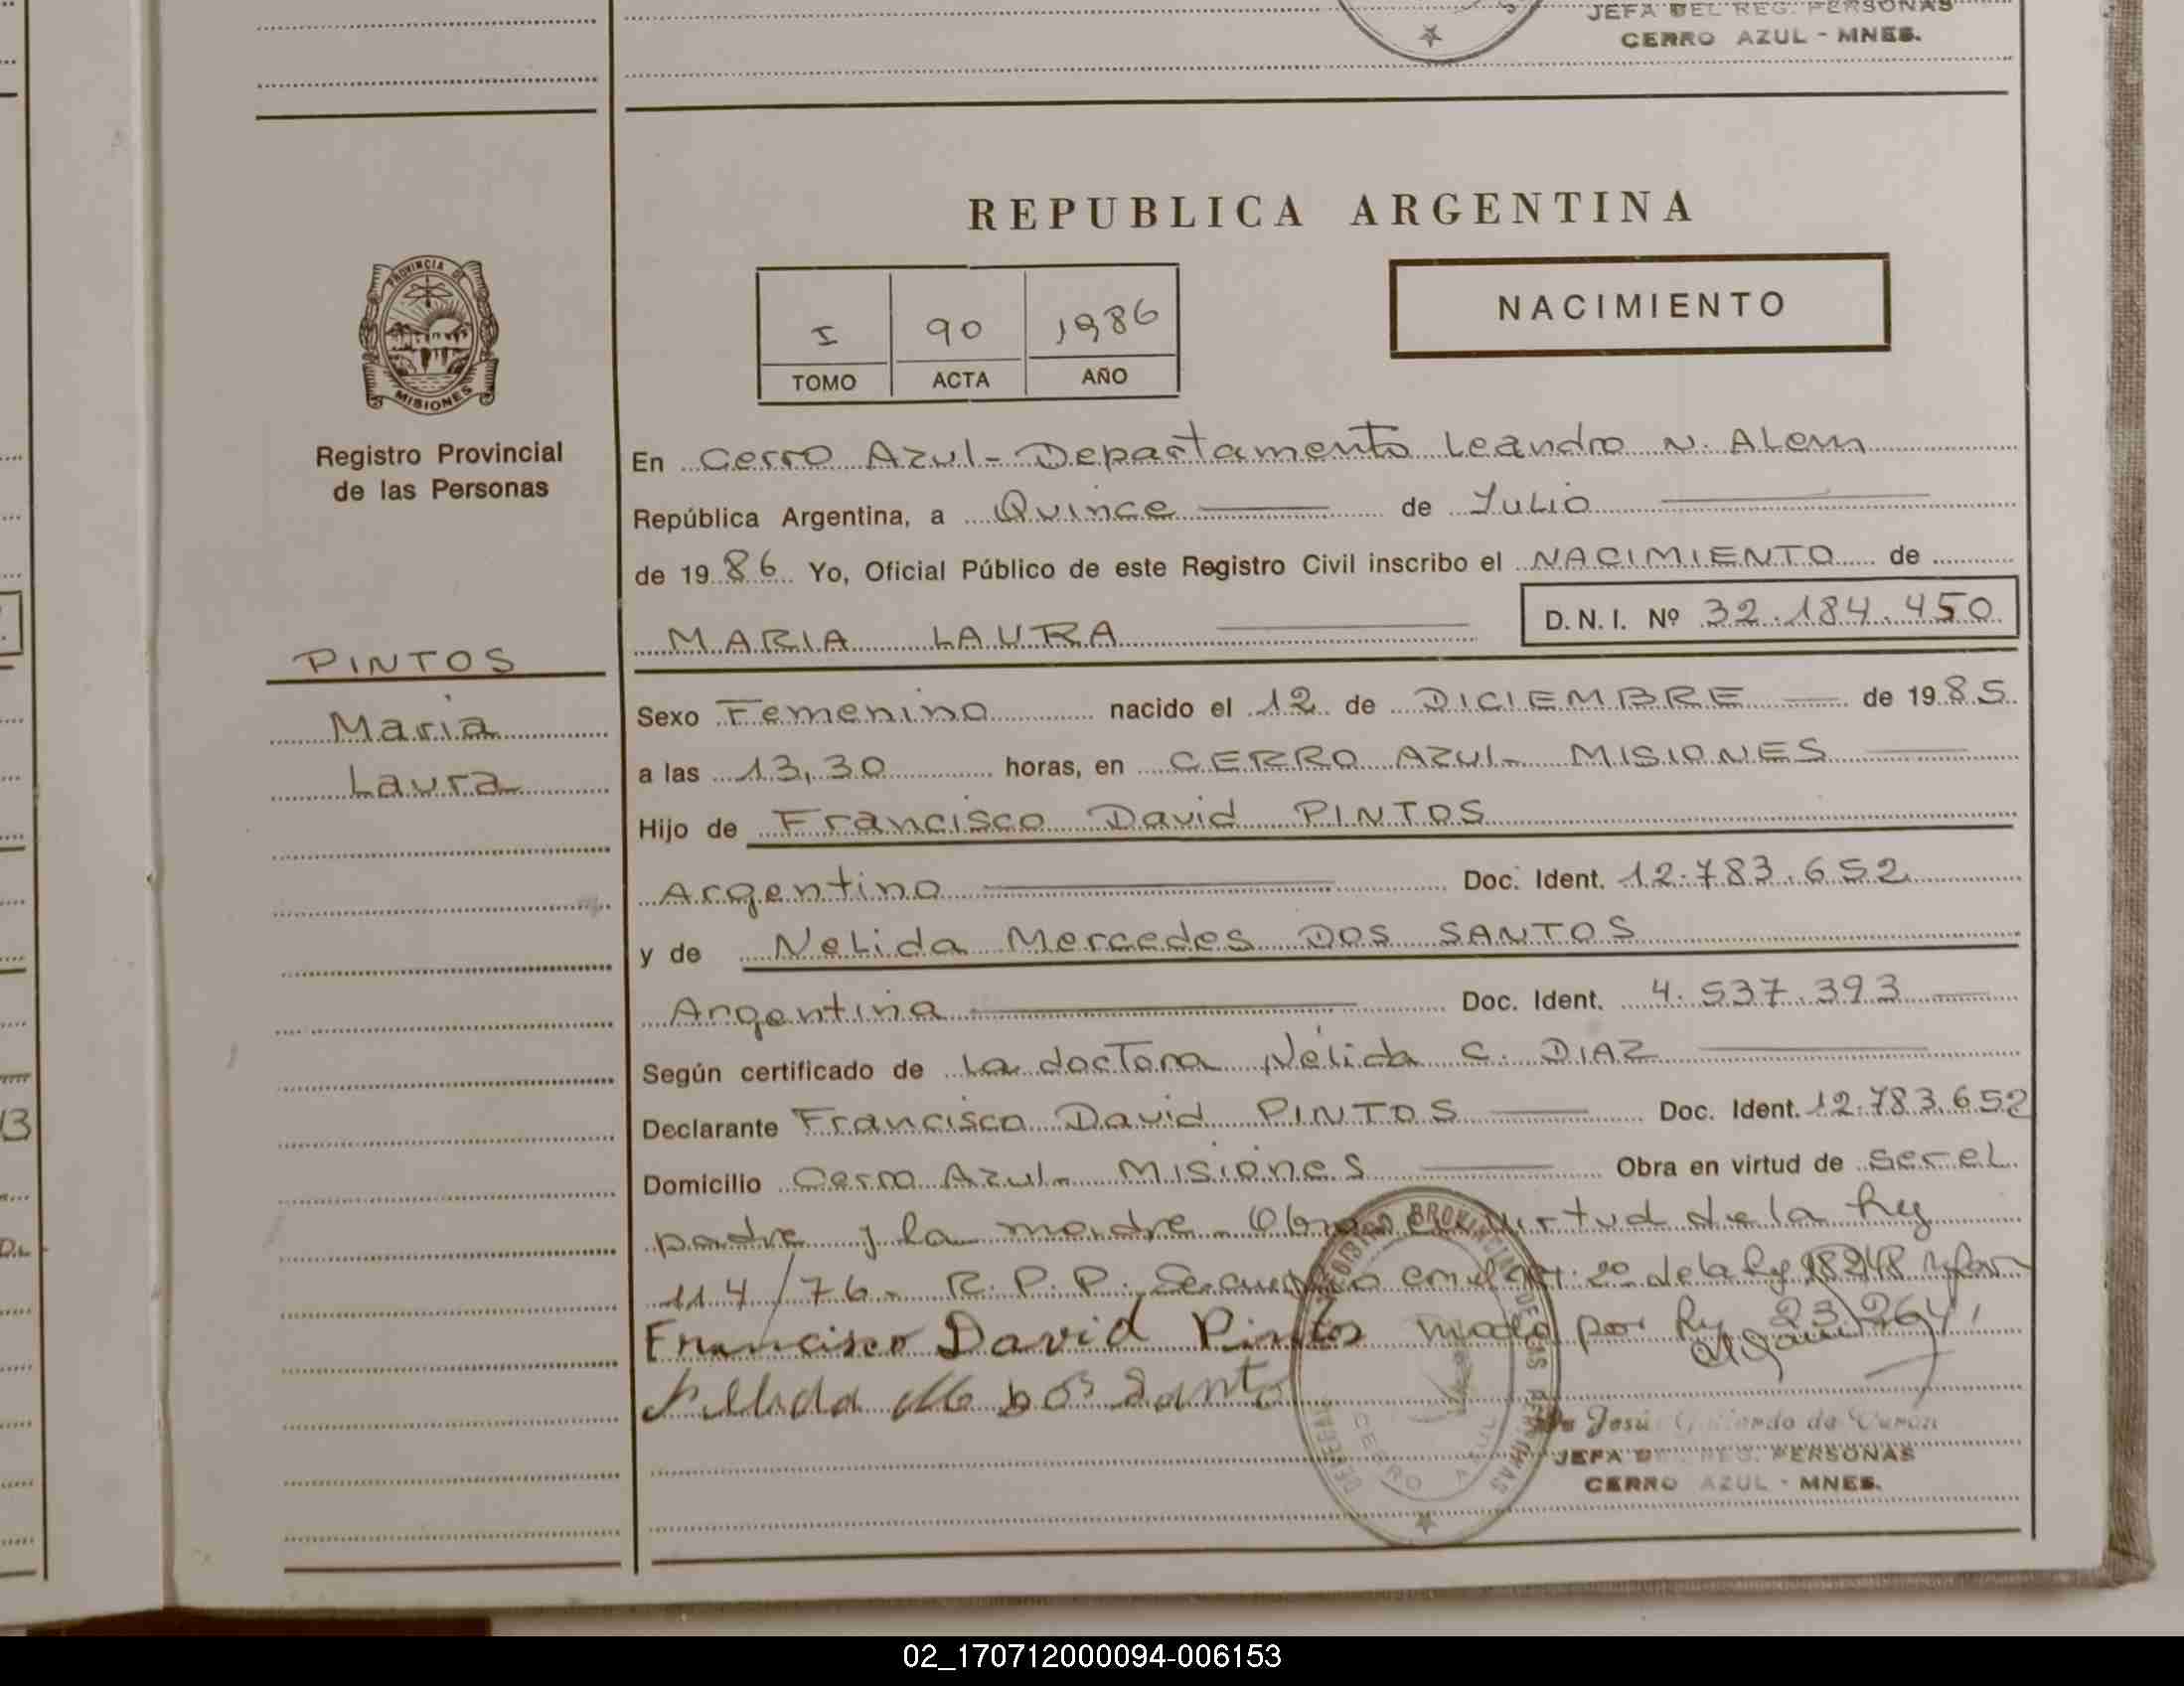 JEFA DEL REG. PERSONAS
CERRO AZUL - MNES.
REPUBLICA ARGENTINA
PROVINCIA DE
MISIONES
Registro Provincial
de las Personas
I 90 1986
TOMO ACTA AÑO
NACIMIENTO
PINTOS
Maria
Laura
En Cerro Azul - Departamento Leandro N. Alem
República Argentina, a Quince de Julio
de 1986 Yo, Oficial Público de este Registro Civil inscribo el NACIMIENTO de
MARIA LAURA D.N.I. Nº 32.184.450
Sexo Femenino nacido el 12 de DICIEMBRE de 1985
a las 13,30 horas, en CERRO AZUL - MISIONES
Hijo de Francisco David PINTOS
Argentino Doc. Ident. 12.783.652
y de Nelida Mercedes DOS SANTOS
Argentina Doc. Ident. 4.537.393
Según certificado de La doctora Nélida C. DIAZ
Declarante Francisco David PINTOS Doc. Ident. 12.783.652
Domicilio Cerro Azul - Misiones Obra en virtud de ser el
padre y la madre - Obra en virtud de la Ley
114/76 - R.P.P. de la Ley 18248
Francisco David Pintos por Ley 23.264
Dos Santos
REGISTRO PROVINCIAL DE LAS PERSONAS
CERRO AZUL
JEFA DEL REG. PERSONAS
CERRO AZUL - MNES.
13
02_170712000094-006153